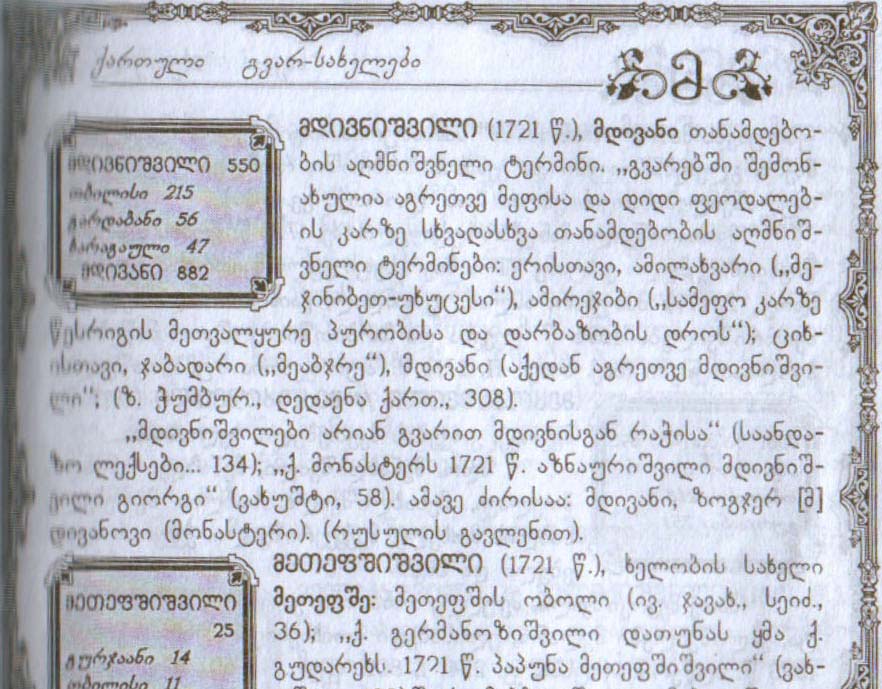 ქართული გვარ-სახელები
მ
მდივნიშვილი 550
თბილისი 215
გარდაბანი 56
ხარაგაული 47
მდივანი 882
მდივნიშვილი (1721 წ.), მდივანი თანამდებო-
ბის აღმნიშვნელი ტერმინი. „გვარებში შემონ-
ახულია აგრეთვე მეფისა და დიდი ფეოდალებ-
ის კარზე სხვადასხვა თანამდებობის აღმნიშ-
ვნელი ტერმინები: ერისთავი, ამილახვარი („მე-
ჯინიბეთ-უხუცესი“), ამირეჯიბი („სამეფო კარზე
წესრიგის მეთვალყურე პურობისა და დარბაზობის დროს“); ციხ-
ისთავი, ჯაბადარი („მეაბჯრე“), მდივანი (აქედან აგრეთვე მდივნიშვი-
ლი“; (ზ. ჭუმბურ., დედაენა ქართ., 308).
„მდივნიშვილები არიან გვარით მდივნისგან რაჭისა“ (საანდა-
ზო ლექსები... 134); „ქ. მონასტერს 1721 წ. აზნაურიშვილი მდივნიშ-
ვილი გიორგი“ (ვახუშტი, 58). ამავე ძირისაა: მდივანი, ზოგჯერ [მ]
დივანოვი (მონასტერი). (რუსულის გავლენით).
მეთეფშიშვილი
25
გურჯაანი 14
თბილისი 11
მეთეფშიშვილი (1721 წ.), ხელობის სახელი
მეთეფშე: მეთეფშის ობოლი (ივ. ჯავახ., სეიძ.,
36); „ქ. გერმანოზიშვილი დათუნას ყმა ქ.
გუდარეხს. 1721 წ. პაპუნა მეთეფშიშვილი“ (ვახ-